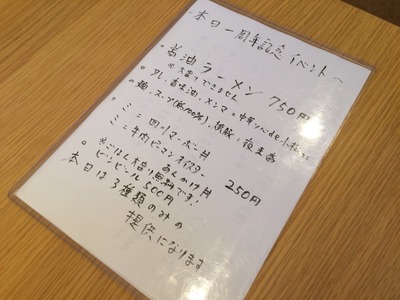 本日一周年記念イベント
醤油ラーメン 750円
※大盛りできません
タレ、香味油、メンマ=中華ソバde小松さん
麺、スープ(鶏100%)、鉄観=夜来香
ミニ四川マーボー丼
ミニ牛肉ピーマンオイスターあんかけ丼 250円
※ごはん大盛り無料です!
ビンビール 500円
本日は3種類のみの
提供になります